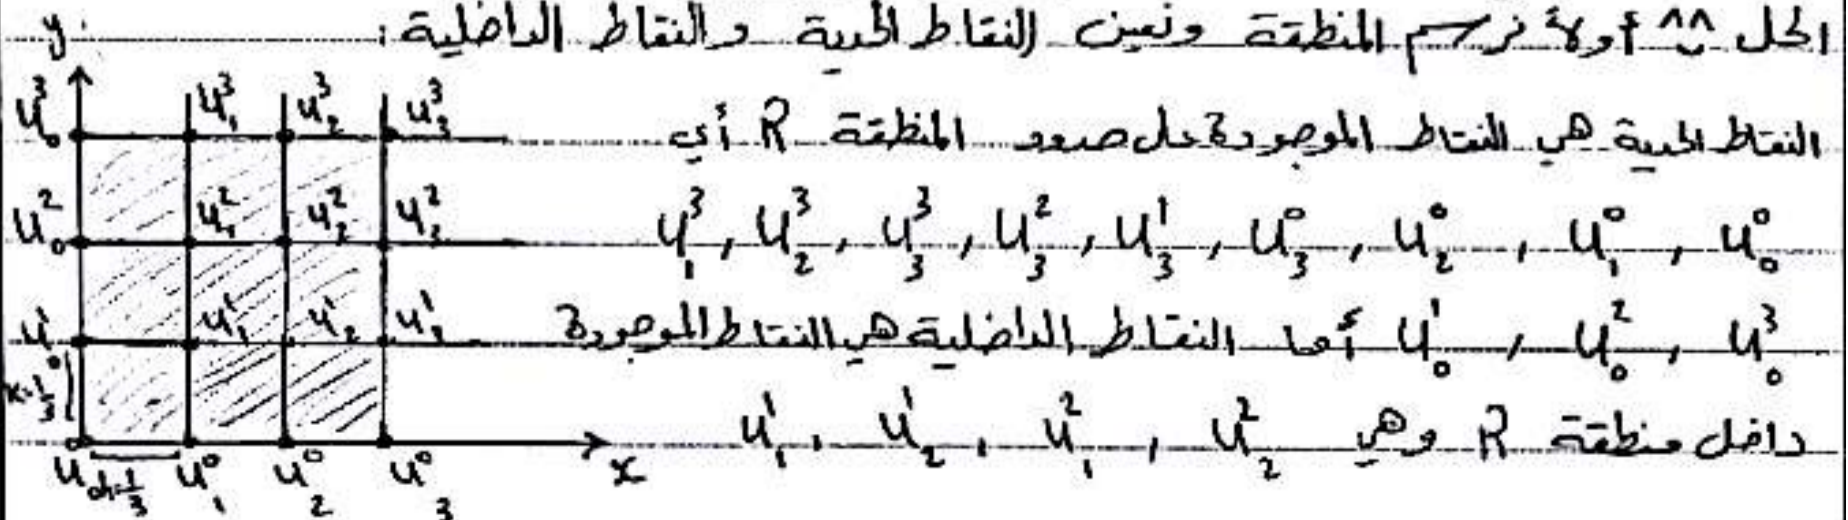 الحل ^^ أولاً نرسم المنطقة ونعين النقاط الحدية والنقاط الداخلية:
النقاط الحدية هي النقاط الموجودة على حدود المنطقة R أي
u₀⁰ , u₁⁰ , u₂⁰ , u₃⁰ , u₃¹ , u₃² , u₃³ , u₂³ , u₁³
u₀³ , u₀² , u₀¹ أما النقاط الداخلية هي النقاط الموجودة
داخل منطقة R وهي u₂² , u₁² , u₂¹ , u₁¹
y
u₀³ u₁³ u₂³ u₃³
u₀² u₁² u₂² u₃²
u₀¹ u₁¹ u₂¹ u₃¹
k=1/3
u₀⁰ u₁⁰ u₂⁰ u₃⁰ x
h=1/3